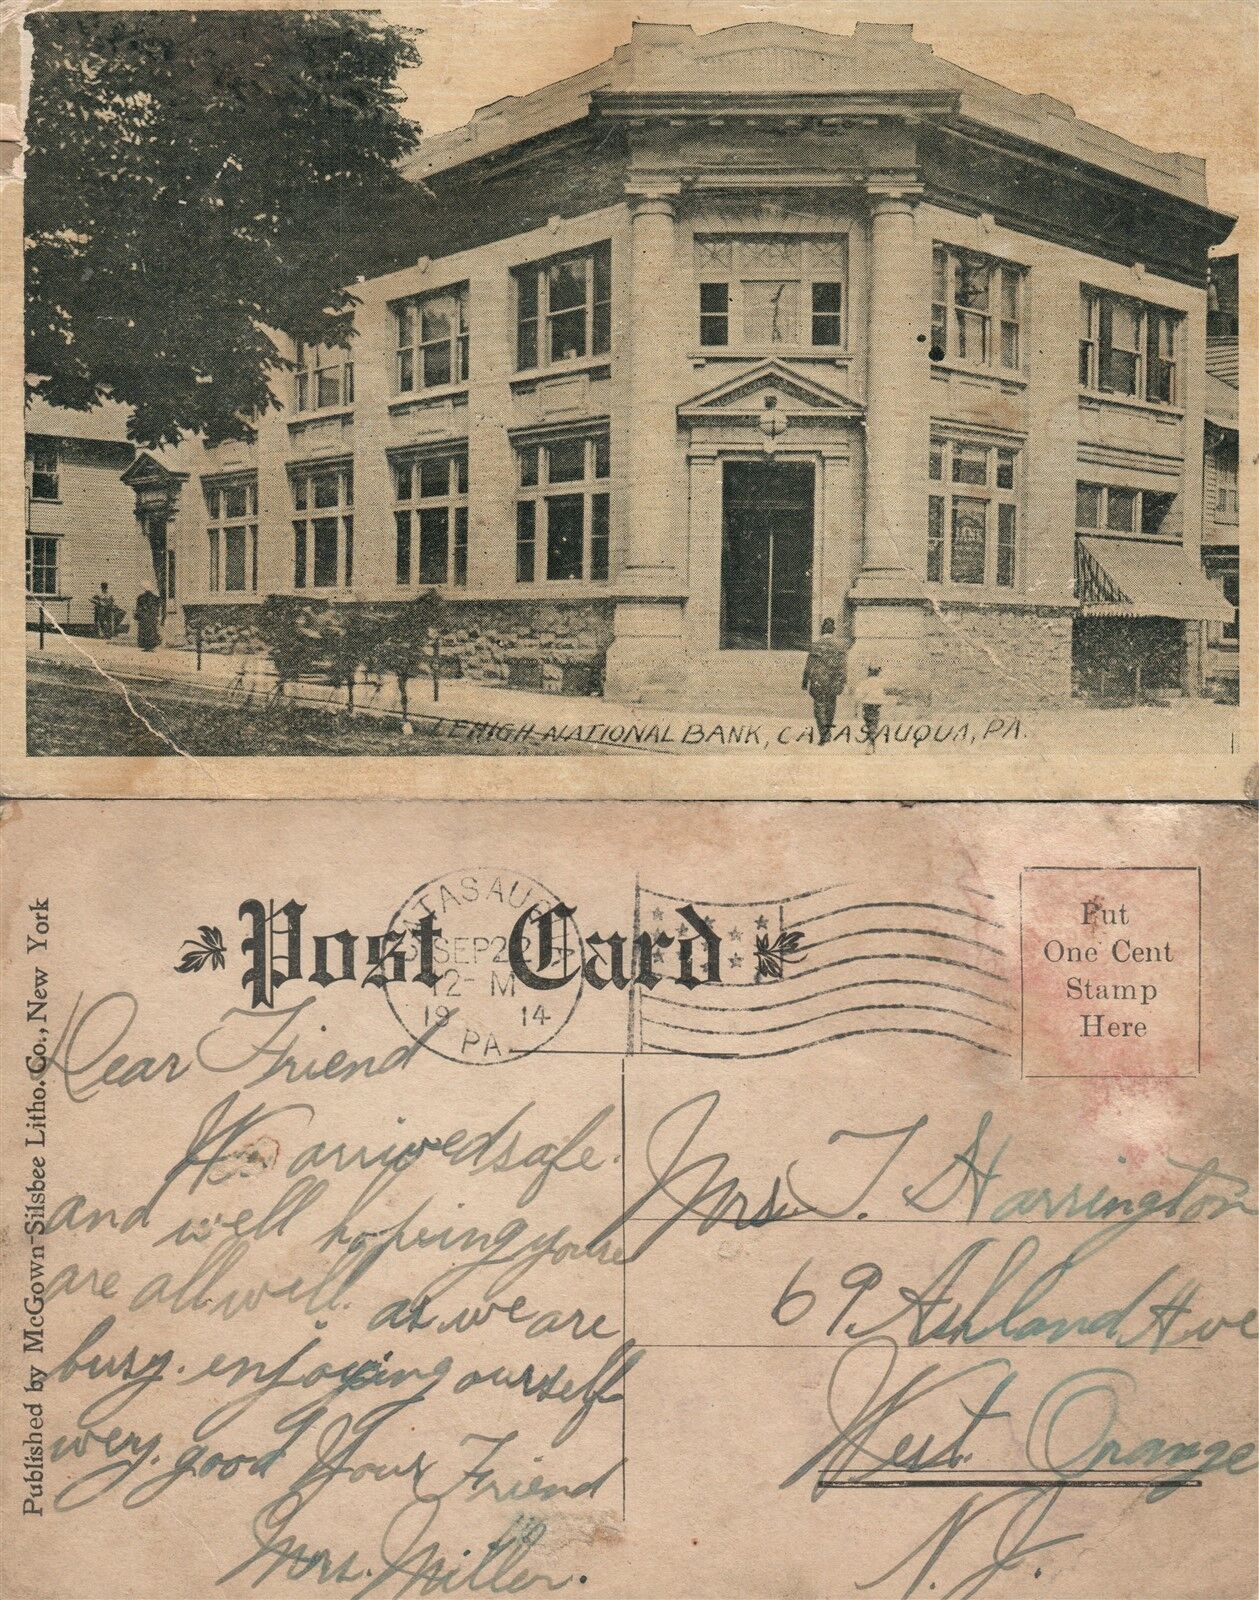 LEHIGH NATIONAL BANK, CATASAUQUA, PA.
Published by McGown-Silsbee Litho. Co., New York
Post Card
CATASAUQUA
SEP 22
12- M
19 14
PA.
Put
One Cent
Stamp
Here
Dear Friend
We arrived safe.
and well hoping youre
are all well. as we are
busy. enjoying ourself
very. good Your Friend
Mrs. Miller.
Mrs. T. Harrington
69. Ashland Ave
West. Orange
N. J.